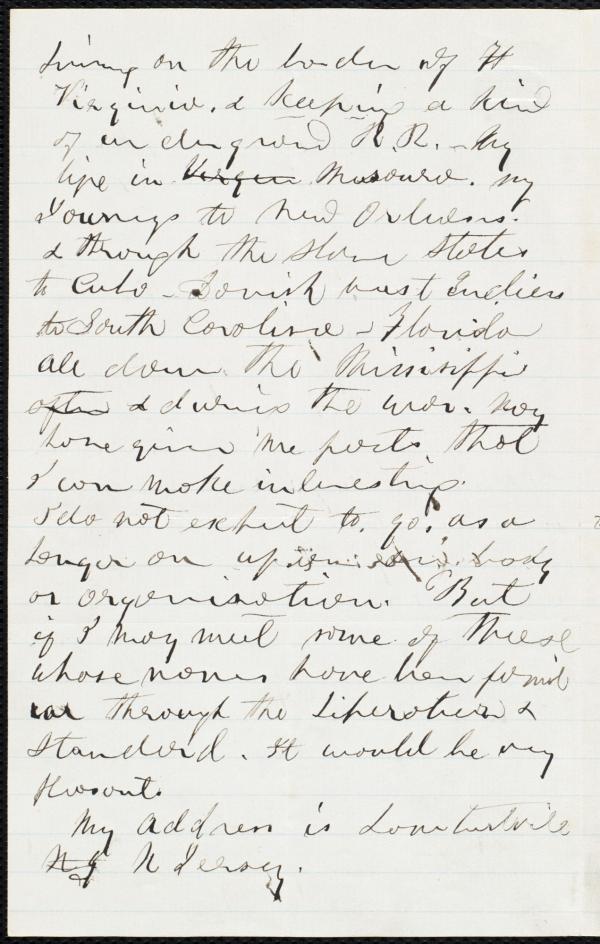 Living on the border of W
Virginia. & Keeping a kind
of underground R. R. - My
life in Virgin Missouri. my
Journeys to New Orleans.
& through the slave States
to Cuba - Danish West Indies
to South Carolina - Florida
all down the Mississippi
often & during the war. may
have given me facts that
I can make interesting.
I do not expect to. go. as a
hanger on up body
or organisation. But
if I may meet some of these
whose names have been famil
iar through the Liberator &
Standard. It would be very
pleasant.
My address is Lambertville
N J N Jersey.